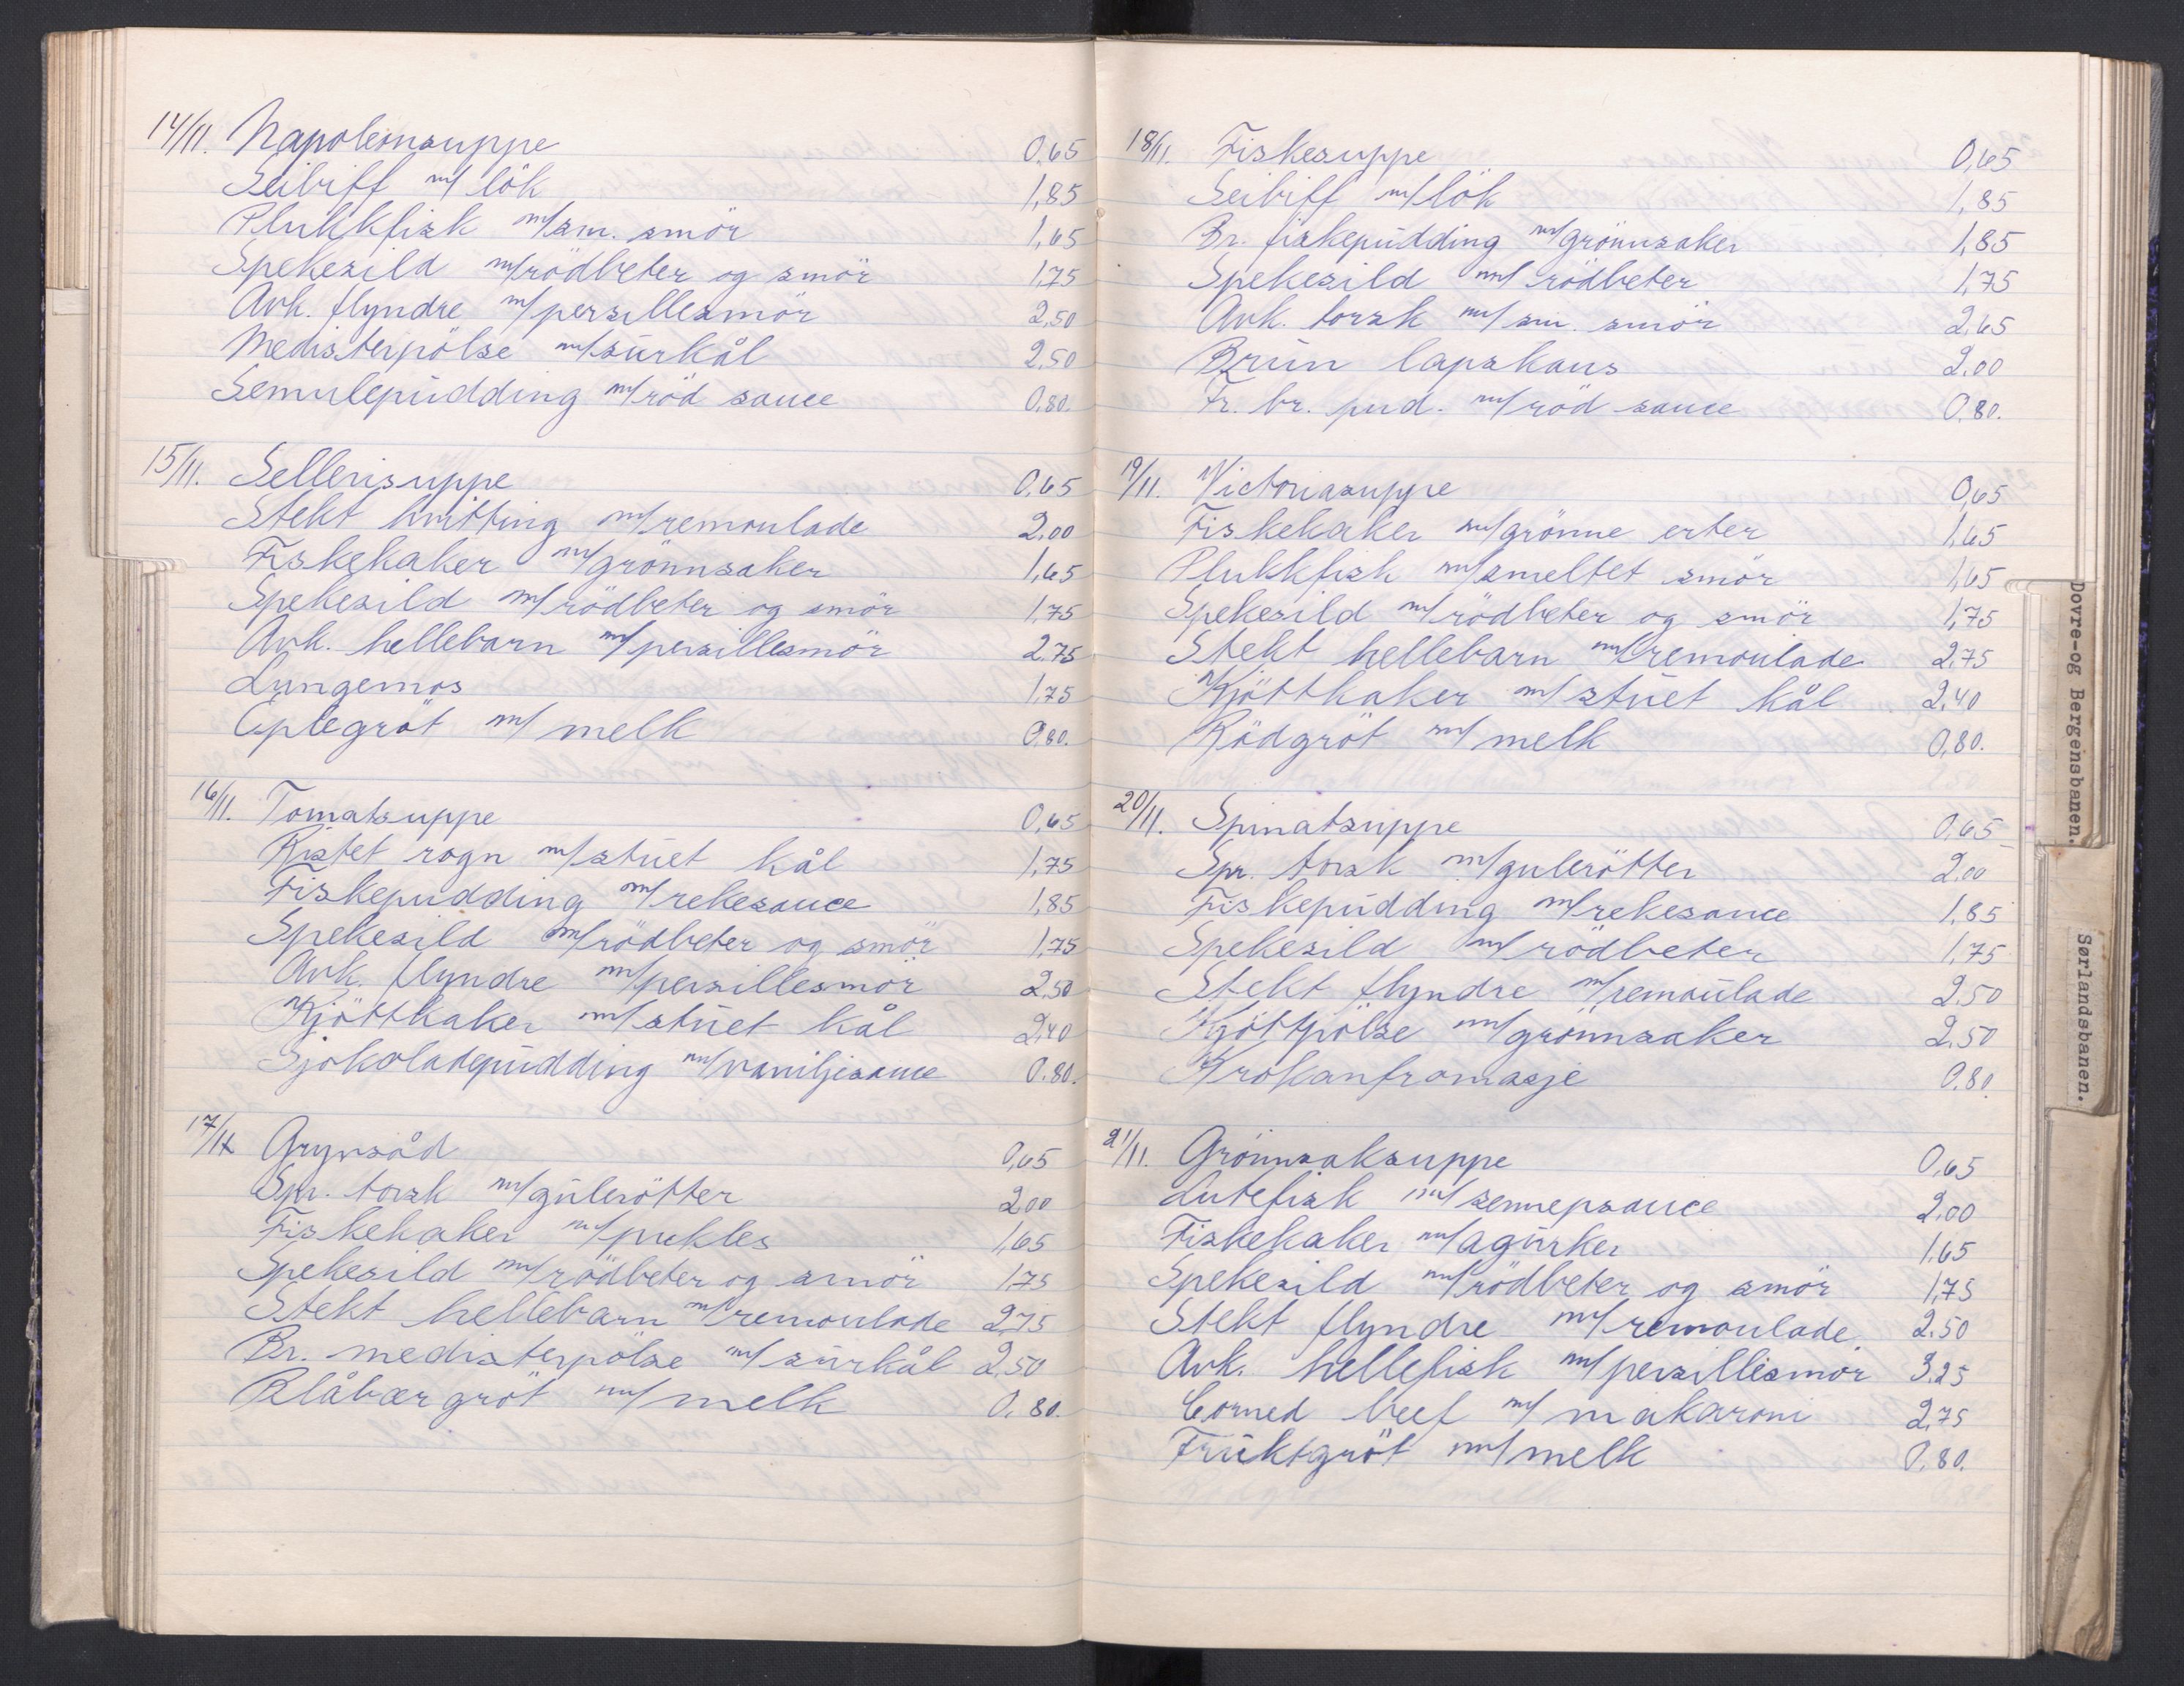 14/11. Napoleonsuppe 0,65
Seibiff m/ lök 1,85
Plukkfisk m/sm. smör 1,65
Spekesild m/rödbeter og smör 1,75
Avk. flyndre m/persillesmör 2,50
Medisterpölse m/surkål 2,50
Semulepudding m/röd sauce 0,80.
15/11. Sellerisuppe 0,65
Stekt hvitting m/remoulade 2,00
Fiskekaker m/grönnsaker 1,65
Spekesild m/rödbeter og smör 1,75
Avk. hellebarn m/persillesmör 2,75
Lungemos 1,75
Eplegröt m/ melk 0,80.
16/11. Tomatsuppe 0,65
Ristet rogn m/stuet kål 1,75
Fiskepudding m/rekesauce 1,85
Spekesild m/rödbeter og smör 1,75
Avk. flyndre m/persillesmör 2,50
Kjöttkaker m/stuet kål 2,40
Sjokoladepudding m/vaniljesauce 0.80.
17/11 Grynsåd 0,65
Spr. torsk m/gulerötter 2,00
Fiskekaker m/pickles 1,65
Spekesild m/rödbeter og smör 1,75
Stekt hellebarn m/remoulade 2,75
Br. medisterpölse m/surkål 2,50
Blåbærgröt m/melk 0,80.
18/11. Fiskesuppe 0,65
Seibiff m/lök 1,85
Br. fiskepudding m/grönnsaker 1,85
Spekesild m/ rödbeter 1,75
Avk. torsk m/ sm. smör 2,65
Brun lapskaus 2.00
Fr. br. pud. m/röd sauce 0.80.
19/11. Victoriasuppe 0,65
Fiskekaker m/grönne erter 1,65
Plukkfisk m/smeltet smör 1,65
Spekesild m/rödbeter og smör 1,75
Stekt hellebarn m/remoulade 2,75
Kjöttkaker m/stuet kål 2,40
Rödgröt m/melk 0,80.
20/11. Spinatsuppe 0,65
Spr. torsk m/gulerötter 2,00
Fiskepudding m/rekesauce 1,85
Spekesild m/rödbeter 1,75
Stekt flyndre m/remoulade 2,50
Kjöttpölse m/grönnsaker 2,50
Krokanfromasje 0,80
21/11. Grönnsaksuppe 0,65
Lutefisk m/sennepsauce 2.00
Fiskekaker m/agurker 1,65
Spekesild m/rödbeter og smör 1,75
Stekt flyndre m/remoulade 2.50
Avk. hellefisk m/persillesmör 3.25
Corned beef m/ makaroni 2,75
Fruktgröt m/melk 0.80.
Dovre-og Bergensbanen.
Sørlandsbanen.